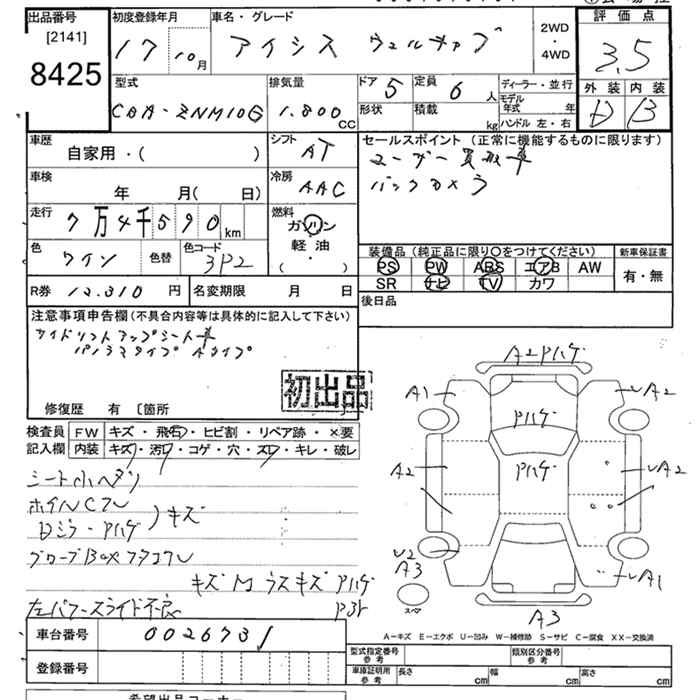 出品番号
[2141]
8425
初度登録年月
17 10月
車名・グレード
アイシス ウェルキャブ
2WD
・
4WD
評価点
3.5
外装 内装
D B
型式
CBA-ZNM10G
排気量
1.800 CC
ドア 5
定員 6 人
形状
積載 kg
ディーラー・並行
モデル年式 年
ハンドル 左・右
車歴
自家用・( )
シフト
AT
車検
年 月( 日)
冷房
AAC
走行
7万4千590km
燃料
ガソリン
軽油
( ・ )
色
ワイン
色替
色コード
3P2
R券 12.310 円
名変期限 月 日
セールスポイント (正常に機能するものに限ります)
ユーザー買取車
バックカメラ
装備品 (純正品に限り○をつけてください)
新車保証書
PS PW ABS エアB AW
SR ナビ TV カワ
有・無
後日品
注意事項申告欄(不具合内容等は具体的に記入して下さい)
サイドリフトアップシート車
パノラマタイプ Aタイプ
初出品
修復歴 有 〔箇所
検査員記入欄
FW キズ・飛石・ヒビ割・リペア跡・×要
内装 キズ・汚・コゲ・穴・スレ・キレ・破レ
シート小ヘタリ
ホイルCフレ
ロジラ・Aハゲ キズ
グローブBOXフタコワレ
キズM ラスキズ Pハゲ
左パワースライド不良
A2 Pハゲ
A1
A2
Pハゲ
Pハゲ
A2
A2
U2
A3
A1
A3
スペア
A-キズ E-エクボ U-凹み W-補修跡 S-サビ C-腐食 XX-交換済
車台番号 0026731
登録番号
型式指定番号 参考
類別区分番号 参考
車庫証明用 参考
長さ cm
幅 cm
高さ cm